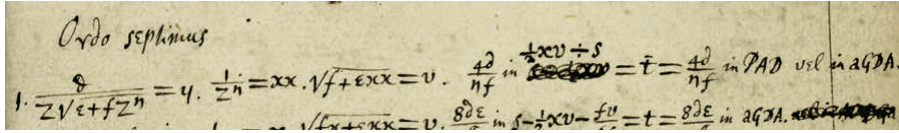 Ordo septimus
1. ∂/z√ε+fzⁿ = y. 1/zⁿ = xx. √f+εxx = v. 4∂/ηf in ½xv ÷ s = t = 4∂/ηf in PAD vel in aGDA.
√fx+εxx = v. 8∂ε in s-½xv- fv = t = 8∂ε in aGDA.